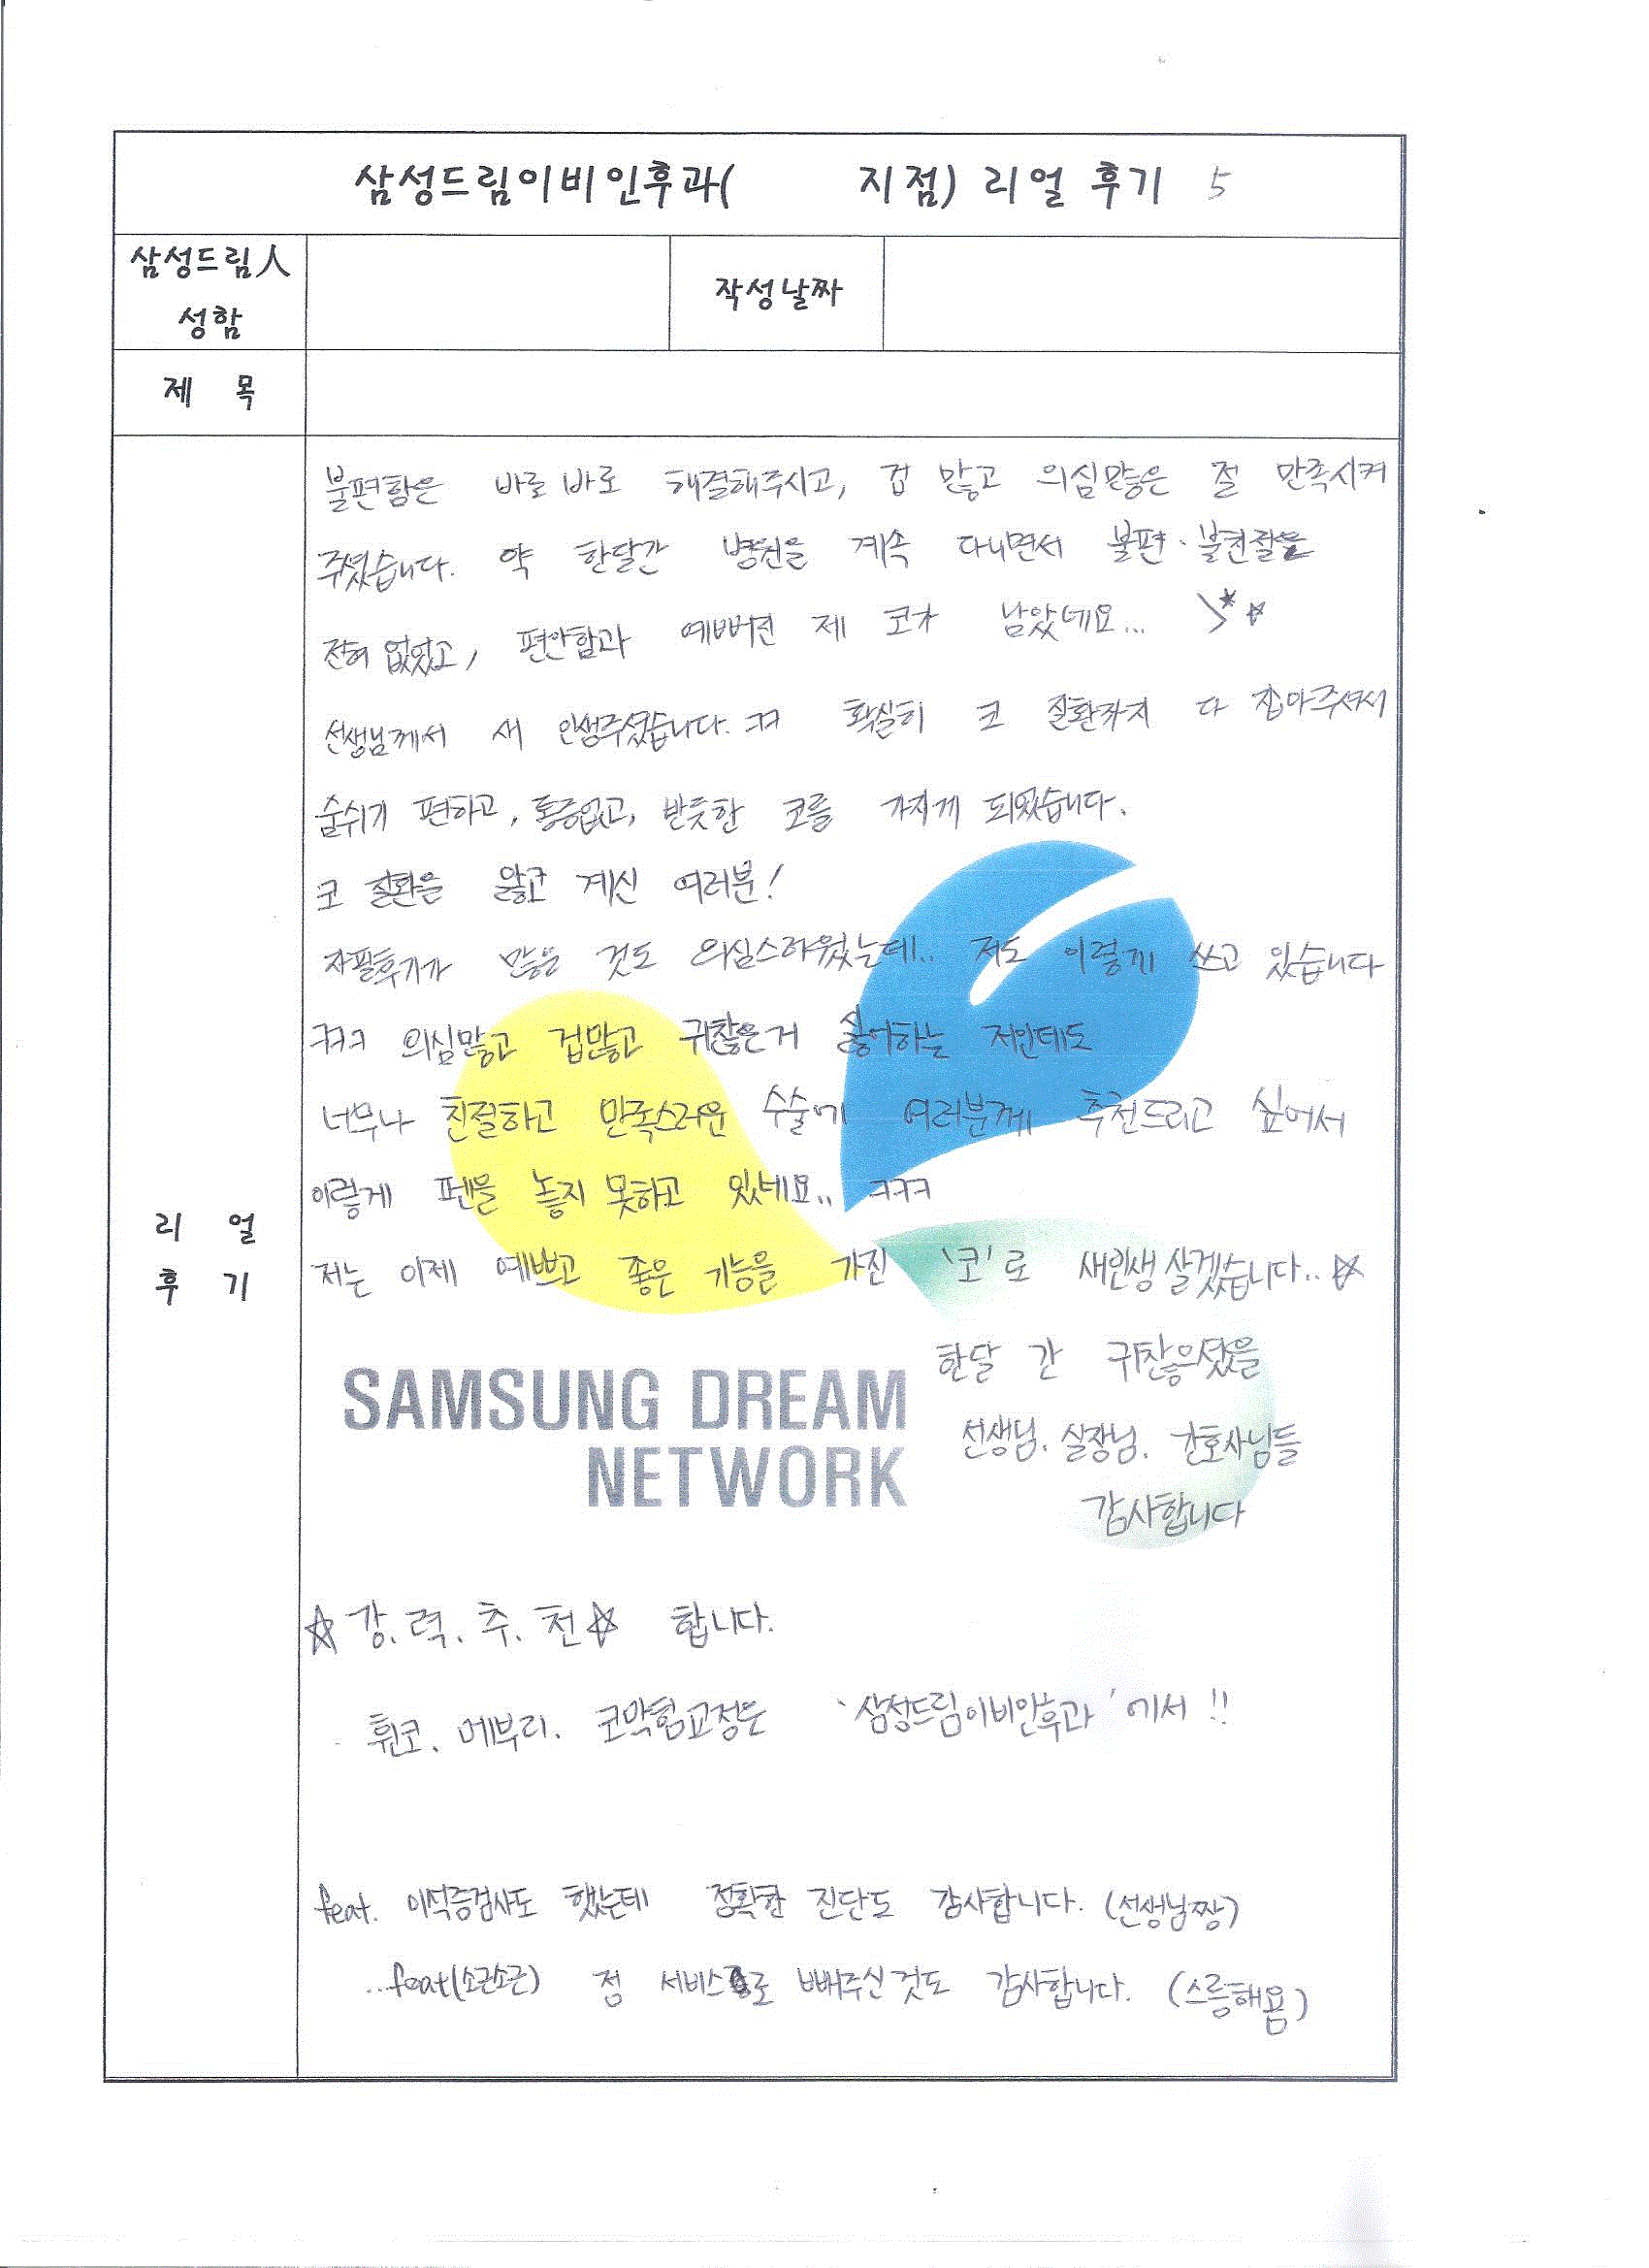 삼성드림이비인후과( 지점) 리얼 후기 5
삼성드림人
성함
작성날짜
제 목
불편함은 바로바로 해결해주시고, 겁 많고 의심많은 절 만족시켜
주셨습니다. 약 한달간 병원을 계속 다니면서 불편·불친절은
전혀 없었고, 편안함과 예뻐진 제 코가 남았네요...
선생님께서 새 인생주셨습니다. ㅋㅋ 확실히 코 질환까지 다 잡아주셔서
숨쉬기 편하고, 통증없고, 반듯한 코를 가지게 되었습니다.
코 질환을 앓고 계신 여러분!
자필후기가 많은 것도 의심스러웠는데.. 저도 이렇게 쓰고 있습니다
ㅋㅋㅋ 의심많고 겁많고 귀찮은거 싫어하는 저인데도
너무나 친절하고 만족스러운 수술에 여러분께 추천드리고 싶어서
이렇게 펜을 놓지 못하고 있네요.. ㅋㅋㅋ
저는 이제 예쁘고 좋은 기능을 가진 '코'로 새인생 살겠습니다.. ☆
한달 간 귀찮으셨을
선생님. 실장님. 간호사님들
감사합니다
SAMSUNG DREAM
NETWORK
리 얼
후 기
☆강.력.추.천☆ 합니다.
휜코. 메부리. 코막힘교정은 '삼성드림이비인후과'에서 !!
feat. 이석증검사도 했는데 정확한 진단도 감사합니다. (선생님짱)
...feat(소근소근) 점 서비스로 빼주신것도 감사합니다. (스릉해욤)